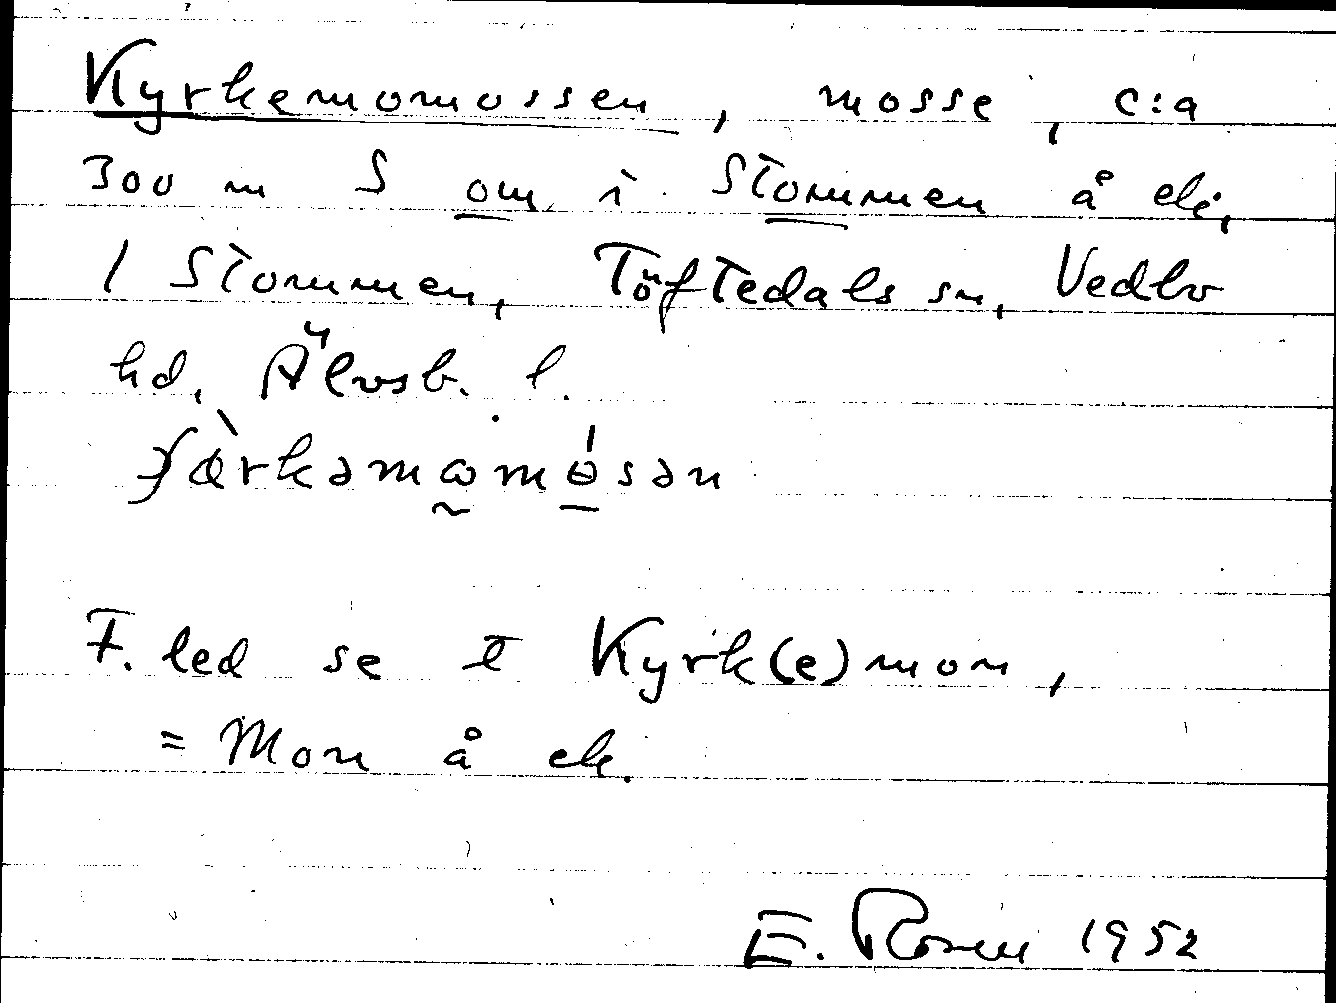 Kyrkemomossen, mosse, c:a
300 m S om i Stommen å ek.
1 Stommen, Töftedals sn, Vedbo
hd. Älvsb. l.
F. led se t Kyrk(e)mon,
= Mon å ek.
E. Rosén 1952